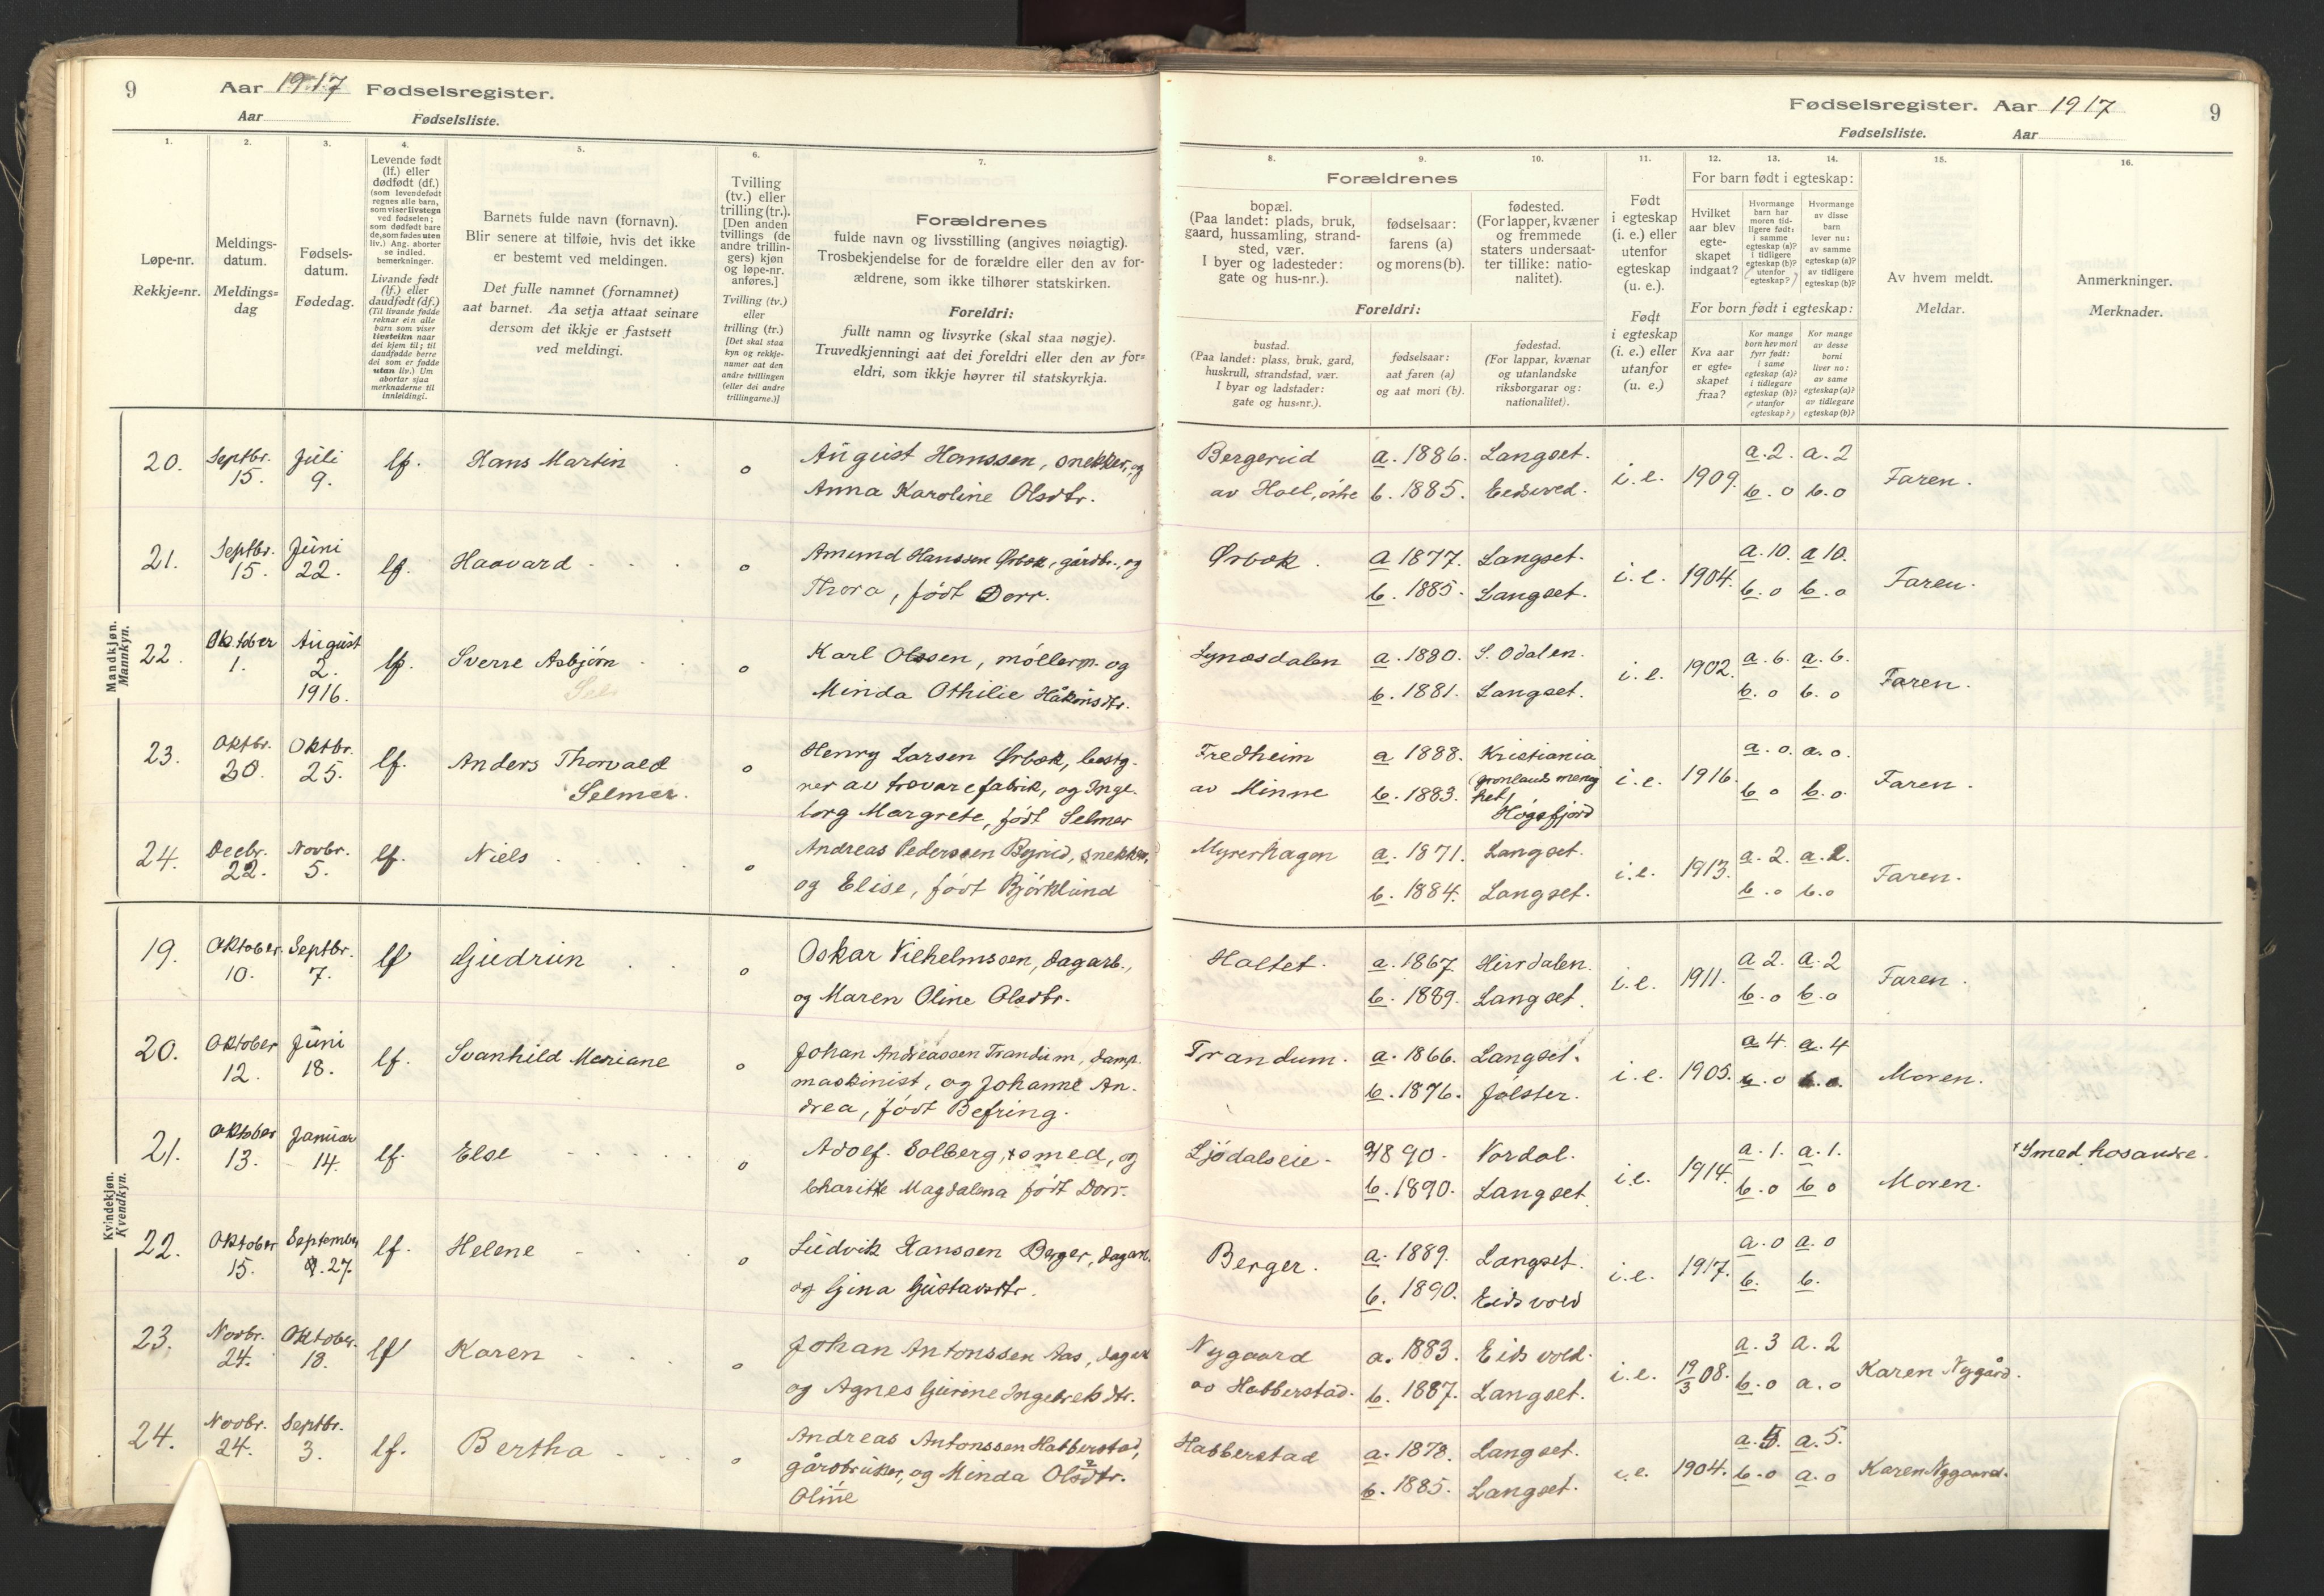 9 Aar 1917 Fødselsregister.
Aar Fødselsliste.
1.
2.
3.
4.
5.
6.
7.
Løpe-nr.
Rekkje=nr.
Meldings-
datum.
Meldings=
dag
Fødsels-
datum.
Fødedag.
Levende født
(lf.) eller
dødfødt (df.)
(som levendefødt
regnes alle barn,
som viser livstegn
ved fødselen;
som dødfødt bare
de, som fødes uten
liv.) Ang. aborter
se indled.
bemerkninger.
Livande født
(lf.) eller
daudfødt (df.)
(Til livande fødde
reknar ein alle
barn som viser
livsteikn naar
dei kjem til; til
daudfødde berre
dei som er fødde
utan liv.) Um
abortar sjaa
merknaderne til
innleidingi.
Barnets fulde navn (fornavn).
Blir senere at tilføie, hvis det ikke
er bestemt ved meldingen.
Det fulle namnet (fornamnet)
aat barnet. Aa setja attaat seinare
dersom det ikkje er fastsett
ved meldingi.
Tvilling
(tv.) eller
trilling (tr.).
[Den anden
tvillings (de
andre trillin-
gers) kjøn
og løpe-nr.
anføres.]
Tvilling (tv.)
eller
trilling (tr.)
[Det skal staa
kyn og rekkje-
numer aat den
andre tvillingen
(eller dei andre
trillingarne.)]
Forældrenes
fulde navn og livsstilling (angives nøiagtig).
Trosbekjendelse for de forældre eller den av for-
ældrene, som ikke tilhører statskirken.
Foreldri:
fullt namn og livsyrke (skal staa nøgje).
Truvedkjenningi aat dei foreldri eller den av for=
eldri, som ikkje høyrer til statskyrkja.
Mandkjøn.
Mannkyn.
20. Septbr. 15. Juli 9. lf. Hans Martin o August Hanssen, snekker, og
Anna Karoline Olsdtr.
21. Septbr. 15. Juni 22. lf. Haavard o Amund Hanssen Ørbæk, gårdbr., og
Thora, født Dorr.
22. Oktober 1. August 2. 1916. lf. Sverre Asbjørn o Karl Olssen, møllerm. og
Minda Othilie Håkonsdtr.
23. Oktbr. 30. Oktbr. 25. lf. Anders Thorvald Selmer. o Henry Larsen Ørbæk, bestg-
rer av trævarefabrik, og Inge-
borg Margrete, født Selmer
24. Decbr. 22. Novbr. 5. lf. Niels o Andreas Pederssen Bjerud, snekker,
og Elise, født Bjørklund
Kvindekjøn.
Kvendkyn.
19. Oktober. 10. Septbr. 7. lf Gudrun o Oskar Vilhelmssen, dagarb.,
og Maren Oline Olsdtr.
20. Oktober 12. Juni 18. lf. Svanhild Mariane o Johan Andreassen Trandum, damp-
maskinist, og Johanne An-
drea, født Befring.
21. Oktober 13. Januar 14. lf. Else o Adolf Solberg, × smed, og
Charitte Magdalena født Dorr.
22. Oktober 15. September 27. lf. Helene o Ludvik Hanssen Berger, dagarb.
og Gina Gustavsdtr.
23. Novbr. 24. Oktober. 18. lf Karen o Johan Antonssen Aas, dagarb
og Agnes Gurine Ingebretsdtr.
24. Novbr. 24. Septbr. 3. lf. Bertha o Andreas Antonssen Habberstad,
gårdbruker, og Minda Olsdtr.
Oline
Fødselsregister. Aar 1917 9
Fødselsliste. Aar
8.
9.
10.
11.
12.
13.
14.
15.
16.
Forældrenes
bopæl.
(Paa landet: plads, bruk,
gaard, hussamling, strand-
sted, vær.
I byer og ladesteder:
gate og hus-nr.).
fødselsaar:
farens (a)
og morens (b).
fødested.
(For lapper, kvæner
og fremmede
staters undersaat-
ter tillike: natio-
nalitet).
Foreldri:
bustad.
(Paa landet: plass, bruk, gard,
huskrull, strandstad, vær.
I byar og ladstader:
gate og hus=nr.).
fødselsaar:
aat faren (a)
og aat mori (b).
fødestad.
(For lappar, kvænar
og utanlandske
riksborgarar og:
nationalitet).
Født
i egteskap
(i. e.) eller
utenfor
egteskap
(u. e.).
Født
i egteskap
(i. e.) eller
utanfor
(u. e.)
For barn født i egteskap:
Hvilket
aar blev
egte-
skapet
indgaat?
Hvormange
barn har
moren tid-
ligere født:
i samme
egteskap (a)?
i tidligere
egteskap (b)?
(utenfor
egteskap?)
Hvormange
av disse
barn
lever nu:
av samme
egteskap (a)?
av tidligere
egteskap (b)?
For born født i egteskap:
Kva aar
er egte=
skapet
fraa?
Kor mange
born hev mori
fyrr født:
i same
egteskap (a)?
i tidlegare
egteskap (b)?
(utanfor
egteskap?)
Kor mange
av desse
borni
liver no:
av same
egteskap (a)?
av tidlegare
egteskap (b)?
Av hvem meldt.
Meldar.
Anmerkninger.
Merknader.
Bergerud a. 1886. Langset. i. e. 1909. a. 2. a. 2 Faren.
av Hoel, østre b. 1885. Eidsvod. b. o b. o
Ørbæk. a 1877. Langset. i. e. 1904. a. 10. a 10. Faren.
b. 1885. Langset. b. o b. o
Lynæsdalen a. 1880. S. Odalen. i. e. 1902. a. 6. a. 6. Faren.
b. 1881. Langset. b. o b. o
Fredheim a 1888. Kristiania i. e. 1916. a. o. a. o. Faren.
av Minne b. 1883. (Grønlands menig
het) b. o b. o.
Høgsfjord
Myrerhagen a. 1871. Langset. i. e. 1913. a. 2. a. 2. Faren.
b. 1884. Langset. b. o b. o
Holtet. a. 1867. Hirrdalen. i. e. 1911. a 2. a. 2 Faren.
b. 1889. Langset. b. o b. o
Trandum. a. 1866. Langset. i. e. 1905. a 4. a. 4 Moren.
b. 1876. Jølster. b. o b. o.
Ljødalseie. a 1890. Nordal. i. e. 1914. a. 1. a. 1. Moren. × Smed hos andre.
b. 1890. Langset b. o b o
Berger. a. 1889. Langset. i. e. 1917. a. o a. o
b. 1890. Eidsvold b. b.
Nygaard a. 1883. Eidsvold. i. e. 19/3 08. a. 3 a. 2 Karen Nygård.
av Habberstad. b. 1887. Langset. b. o a. o
Habberstad a. 1878. Langset. i. e. 1904. a. 5. a. 5. Karen Nygaard.
b. 1885. Langset. b. o a. o